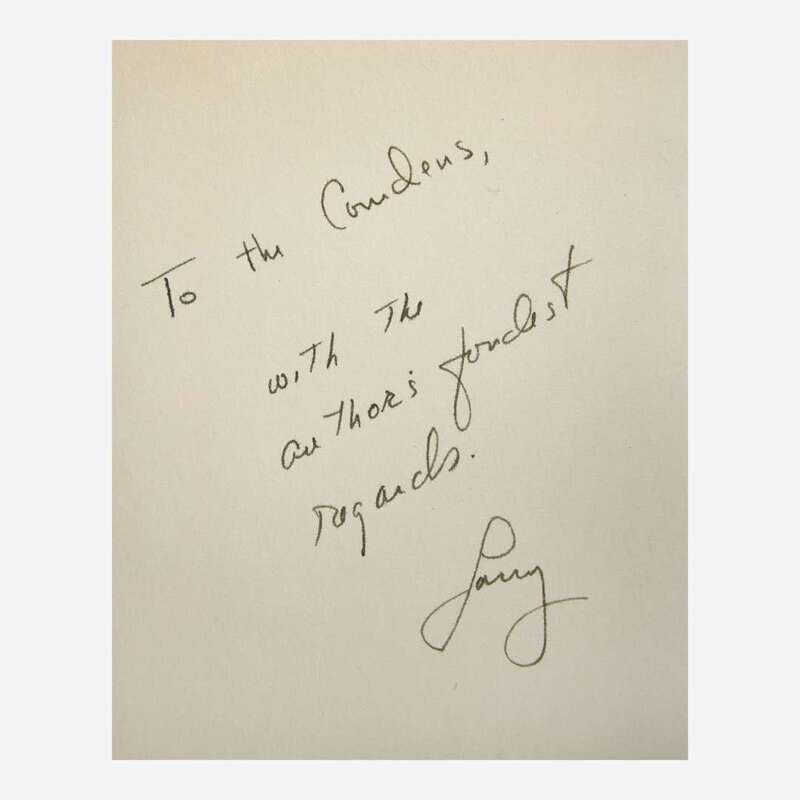 To the Comdens,
with the
author's fondest
regards.
Larry